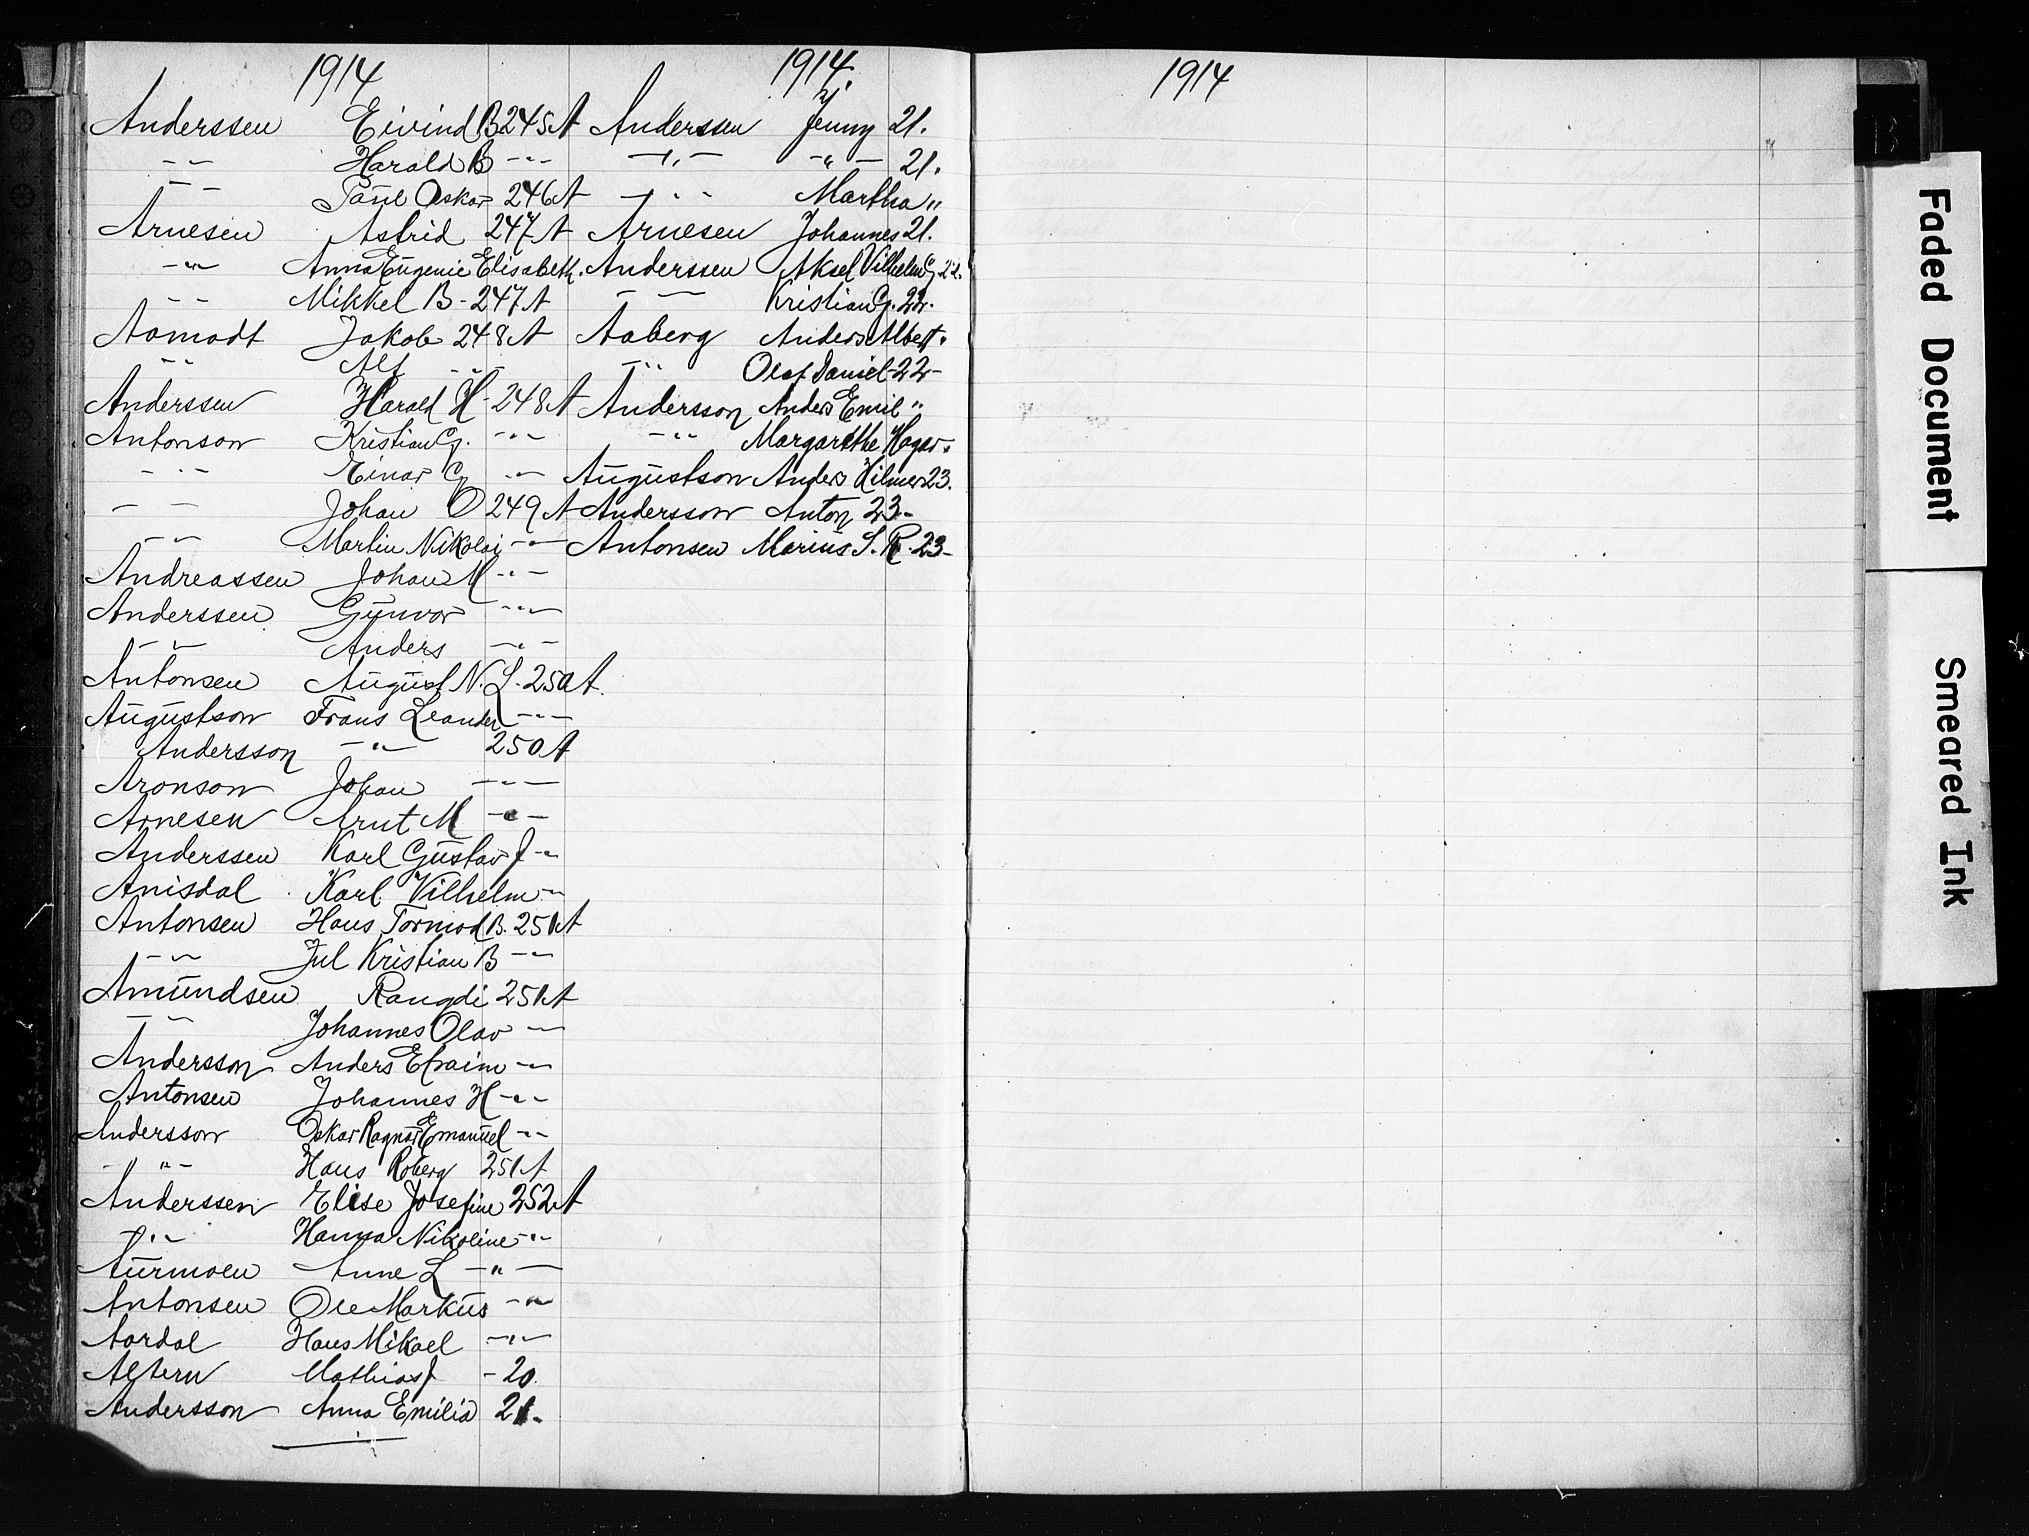 1914
Anderssen Eivind B 245 A
-"- Harald B -"-
-"- Paul Oskar 246 A
Arnesen Astrid 247 A
-"- Anna Eugenie Elisabeth.
-"- Mikkel B - 247 A
Aamodt Jakob 248 A
-"- Alf -"-
Anderssen Harald H - 248 A
Antonson Kristian G. -"-
-"- Einar G -"-
-"- Johan O 249 A
-"- Martin Nikolai -"-
Andreassen Johan M -"-
Anderssen Gunvor -"-
-"- Anders -"-
Antonsen August N. L. 250 A.
Augustson Frans Leander -"-
Andersson -"- 250 A
Aronson Johan -"-
Arnesen Arnt M -"-
Anderssen Karl Gustav J -"-
Anisdal Karl Vilhelm -"-
Antonsen Hans Tormod B. 251 A
-"- Jul Kristian B -"-
Amundsen Rangdi 251 A
-"- Johannes Olav -"-
Andersson Anders Efraim -"-
Antonsen Johannes H -"-
Andersson Oskar Ragnar Emanuel -"-
-"- Hans Roberg 251 A
Anderssen Elise Josefine 252 A
-"- Hanna Nikoline -"-
Aurmoen Anne L -"-
Antonsen Ole Markus -"-
Aardal Hans Mikael -"-
Altern Mathias J - 20.
Andersson Anna Emilia 21.
1914.
Anderssen Jenny 21.
-"- -"- 21.
-"- Martha "
Arnesen Johannes 21.
Anderssen Aksel Vilhelm G 22.
-"- Kristian G. 22.
Aaberg Anders Albert "
-"- Olaf Daniel - 22 -
Andersson Anders Emil "
-"- Margarethe Hagar "
Augustson Anders Hilmer 23.
Andersson Anton 23 -
Antonsen Marius S. R. 23 -
1914
B
Faded Document
Smeared Ink